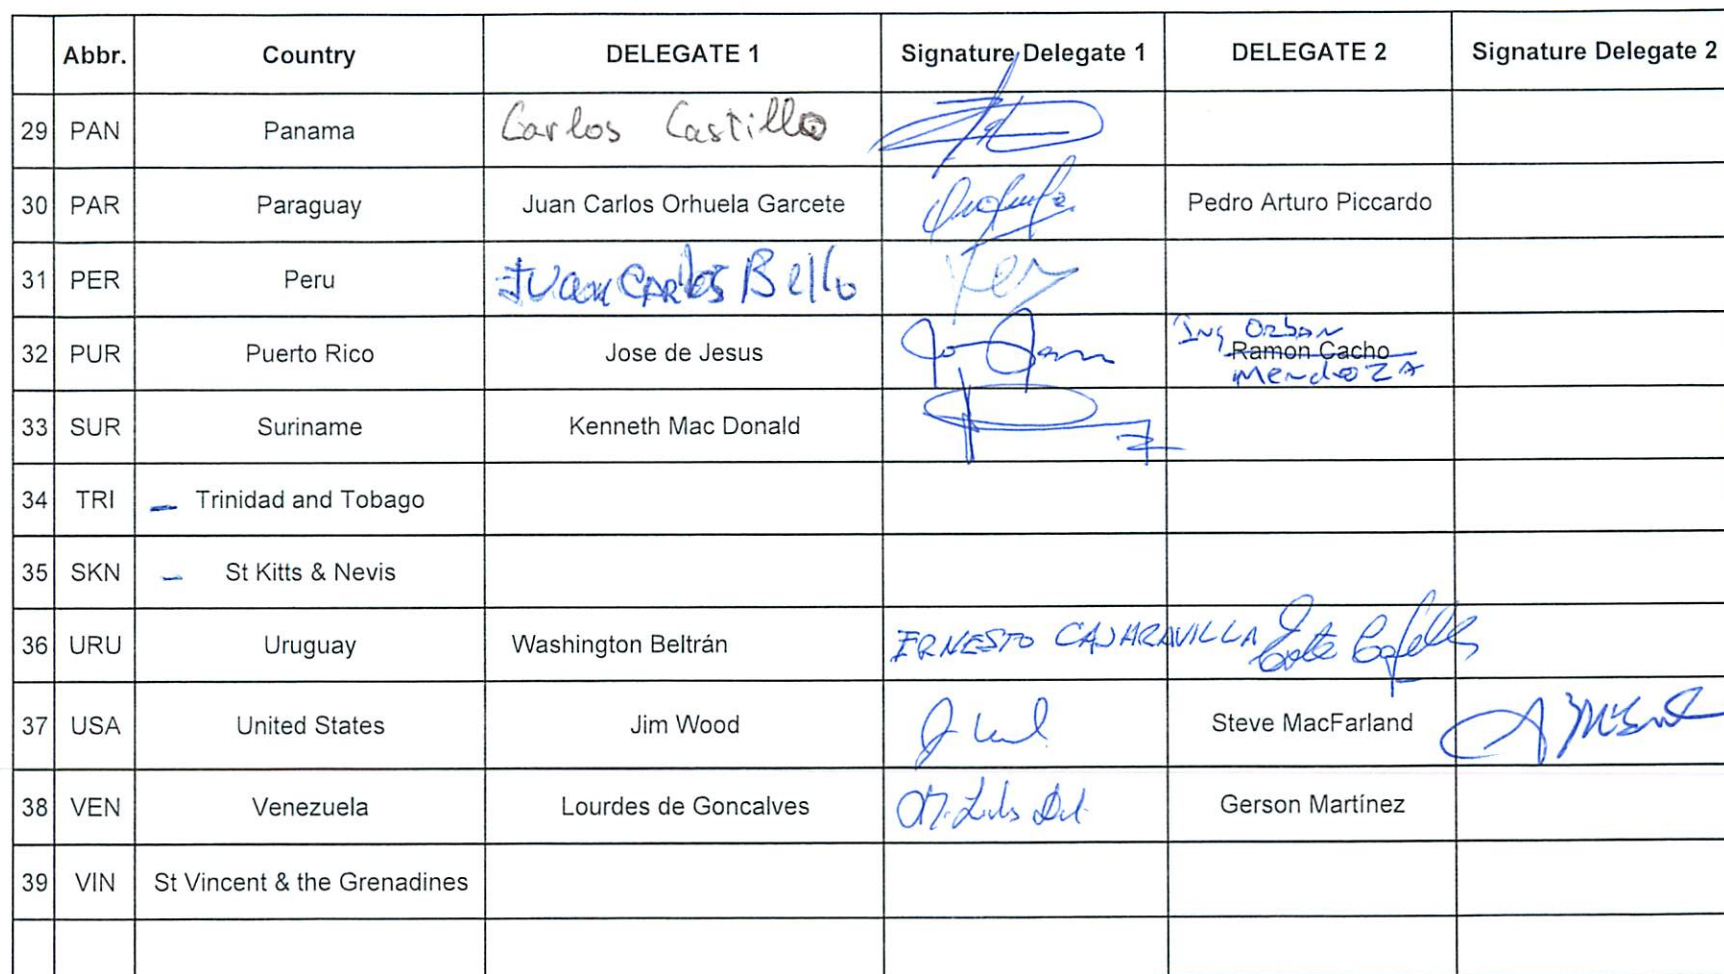 Abbr. Country DELEGATE 1 Signature Delegate 1 DELEGATE 2 Signature Delegate 2
29 PAN Panama Carlos Castillo
30 PAR Paraguay Juan Carlos Orhuela Garcete Pedro Arturo Piccardo
31 PER Peru Juan Carlos Bello
32 PUR Puerto Rico Jose de Jesus Ing Orban Ramon Cacho Mendoza
33 SUR Suriname Kenneth Mac Donald
34 TRI Trinidad and Tobago
35 SKN St Kitts & Nevis
36 URU Uruguay Washington Beltrán ERNESTO CAJARAVILLA
37 USA United States Jim Wood Steve MacFarland
38 VEN Venezuela Lourdes de Goncalves Gerson Martínez
39 VIN St Vincent & the Grenadines